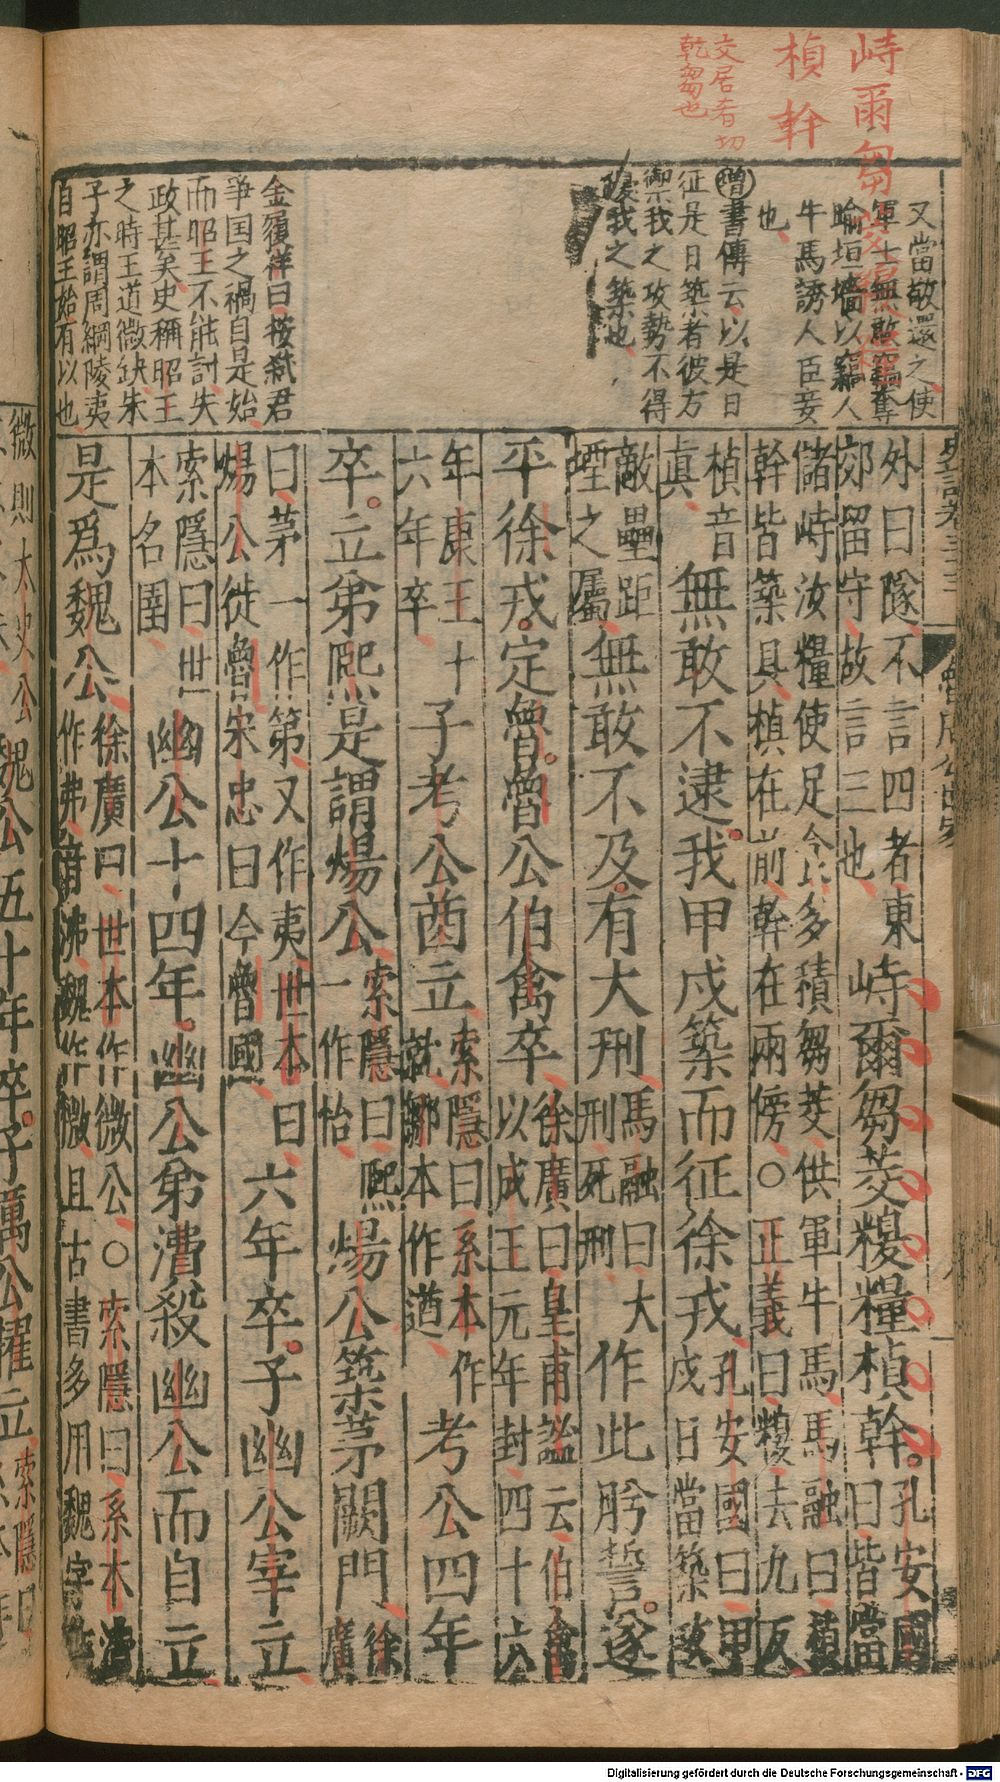 峙爾芻茭糗糧
楨幹
交居肴切
乾芻也
又當敬還之使
軍士無敢竊奪
踰垣墻以竊人
牛馬誘人臣妾
也
增書傳云以是日
征是日築者彼方
禦我之攻勢不得
擾我之築也
金履祥曰按弒君
爭国之禍自是始
而昭王不能討失
政甚矣史稱昭王
之時王道微缺朱
子亦謂周綱陵夷
自昭王始有以也
史記卷三十三
魯周公世家
八
外曰隧不言四者東
郊留守故言三也
峙爾芻茭糗糧楨幹
孔安國
曰皆當
儲峙汝糧使足食多積芻茭供軍牛馬馬融曰楨
幹皆築具楨在前幹在兩傍○正義曰糗去九反
楨音
眞
無敢不逮我甲戌築而征徐戎
孔安國曰甲
戌日當築攻
敵壘距
堙之屬
無敢不及有大刑
馬融曰大
刑死刑
作此肸誓遂
平徐戎定魯魯公伯禽卒
徐廣曰皇甫謐云伯禽
以成王元年封四十六
年康王十
六年卒
子考公酋立
索隱曰系本作
就鄒本作遒
考公四年
卒立弟熙是謂煬公
索隱曰熙
一作怡
煬公築茅闕門
徐
廣
曰茅一作第又作夷世本曰
煬公徙魯宋忠曰今魯國
六年卒子幽公宰立
索隱曰世
本名圉
幽公十四年幽公弟潰殺幽公而自立
是爲魏公
徐廣曰世本作微公○索隱曰系本潰
作弗音沸魏作微且古書多用魏字
微則太史公
魏公五十年卒子厲公擢立
索隱曰
Digitalisierung gefördert durch die Deutsche Forschungsgemeinschaft - DFG